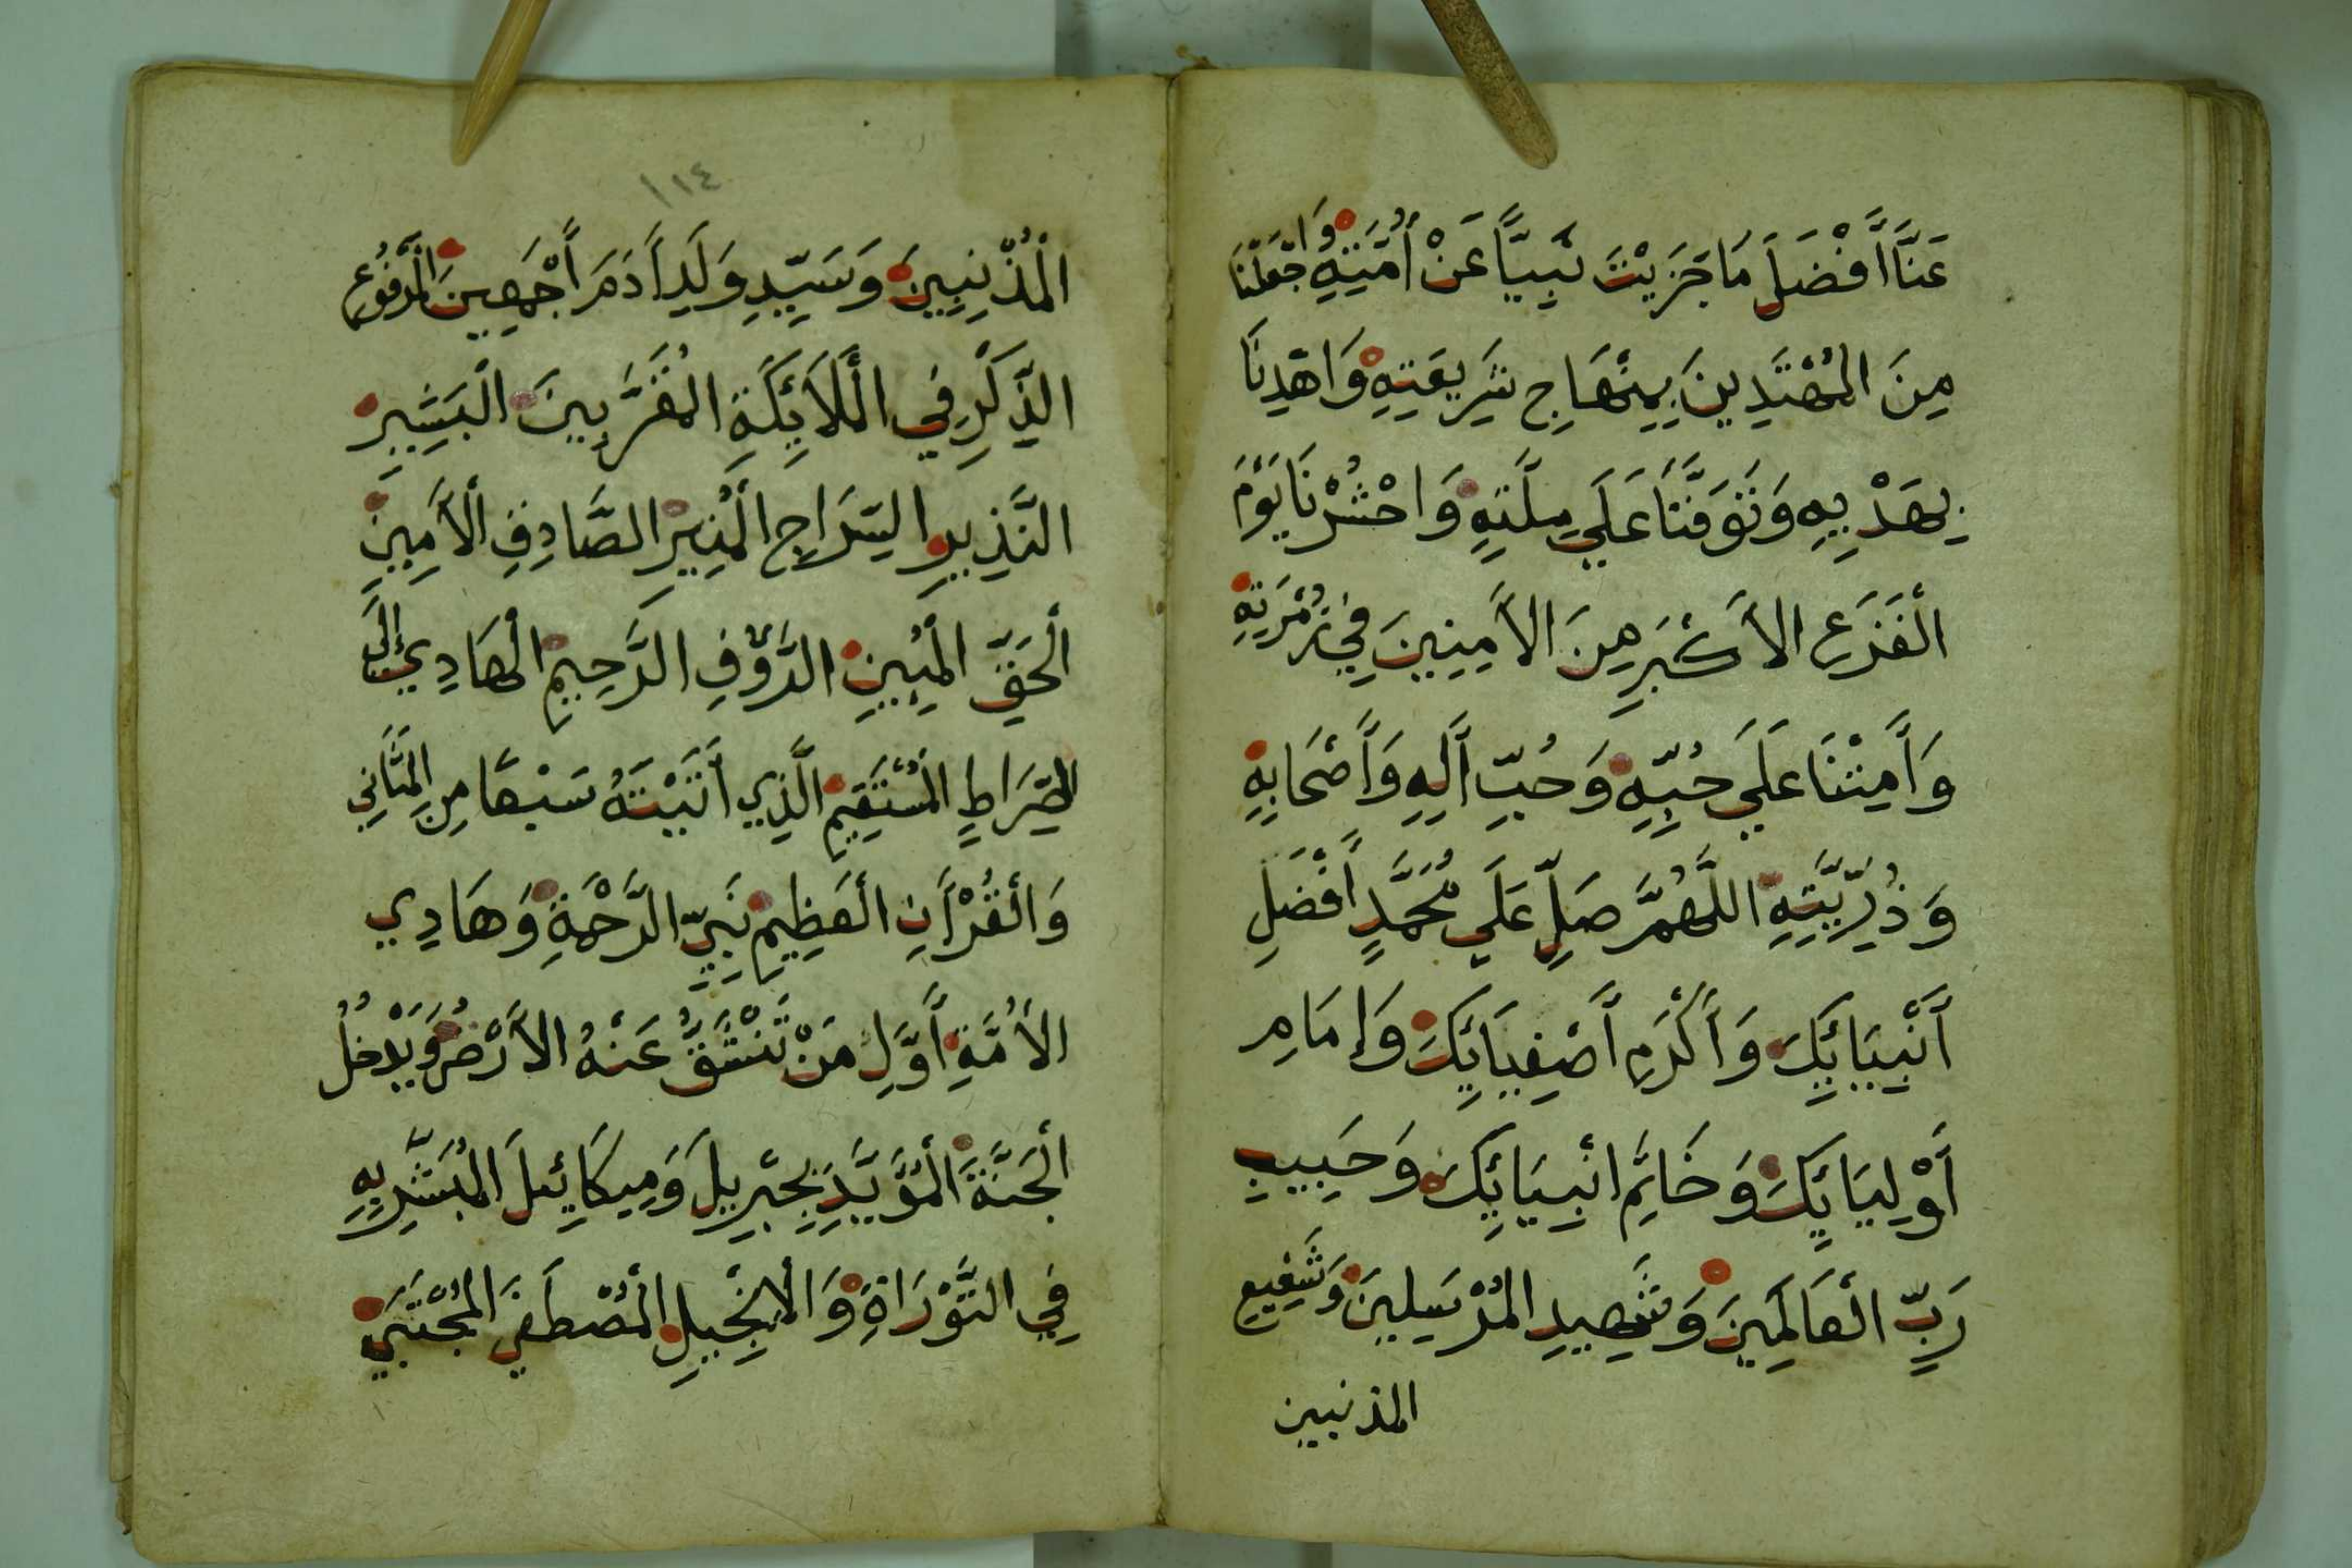 عَنَّا أَفْضَلَ مَا جَزَيْتَ نَبِيًّا عَنْ أُمَّتِهِ وَاجْعَلْنَا
مِنَ الْمُهْتَدِينَ بِمِنْهَاجِ شَرِيعَتِهِ وَاهْدِنَا
بِهَدْيِهِ وَتَوَفَّنَا عَلَي مِلَّتِهِ وَاحْشُرْنَا يَوْمَ
الْفَزَعِ الأَكْبَرِ مِنَ الأَمِنِينَ فِي زُمْرَتِهِ
وَأَمِتْنَا عَلَي حُبِّهِ وَحُبِّ آلِهِ وَأَصْحَابِهِ
وَذُرِّيَّتِهِ اللَّهُمَّ صَلِّ عَلَي مُحَمَّدٍ أَفْضَلِ
أَنْبِيَائِكَ وَأَكْرَمِ أَصْفِيَائِكَ وَإِمَامِ
أَوْلِيَائِكَ وَخَاتِمِ انْبِيَائِكَ وَحَبِيبِ
رَبِّ الْعَالَمِينَ وَشَهِيدِ الْمُرْسَلِينَ وَشَفِيعِ
المذنبين
١١٤
الْمُذْنِبِينَ وَسَيِّدِ وَلَدِ أَدَمَ أَجْمَعِينَ الْمَرْفُوعِ
الذِّكْرِ فِي الْمَلاَئِكَةِ الْمُقَرَّبِينَ الْبَشِيرِ
النَّذِيرِ السِّرَاجِ الْمُنِيرِ الصَّادِقِ الْأَمِينِ
الْحَقِّ الْمُبِينِ الرَّؤُفِ الرَّحِيمِ الْهَادِي إِلَي
الصِّرَاطِ الْمُسْتَقِيمِ الَّذِي أَتَيْتَهُ سَبْعًا مِنَ الْمَثَانِي
وَالْقُرْأَنِ الْعَظِيمِ نَبِيِّ الرَّحْمَةِ وَهَادِي
الأُمَّةِ أَوَّلِ مَنْ تَنْشَقُّ عَنْهُ الأَرْضُ وَيَدْخُلُ
الْجَنَّةَ الْمُؤَيَّدِ بِجِبْرِيلَ وَمِيكَائِيلَ الْمُبَشَّرِ بِهِ
فِي التَّوْرَاةِ وَالْانْجِيلِ الْمُصْطَفَي الْمُجْتَبَي